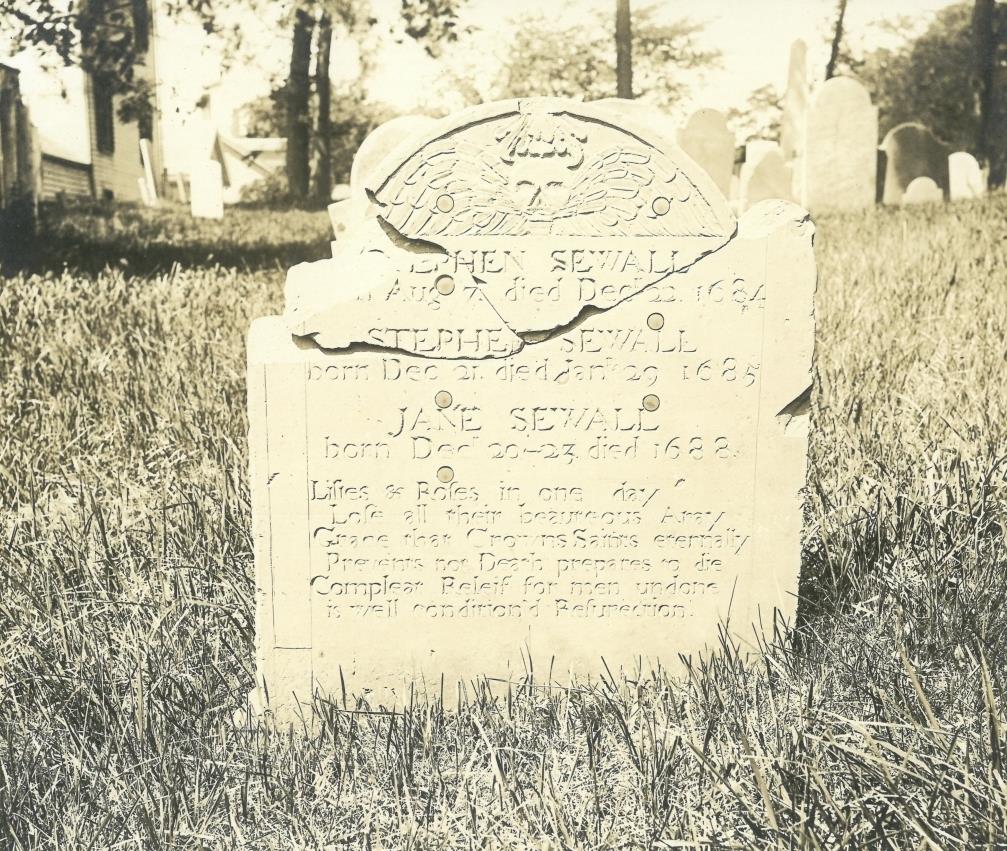 STEPHEN SEWALL
Aug 7. died Decr 22. 1684
STEPHEN SEWALL
born Dec 21. died Janr 29 1685
JANE SEWALL
born Decr 20-23. died 1688.
Lillies & Roſes in one day
Loſe all their beauteous Aray
Grace that Crowns Saints eternally
Prevents not Death prepares to die
Compleat Releif for men undone
is well condition'd Reſurection.